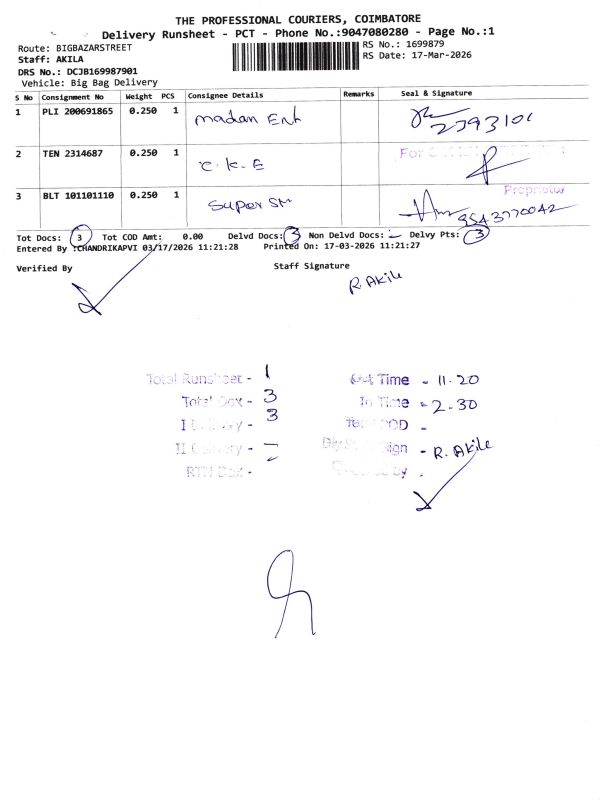 THE PROFESSIONAL COURIERS, COIMBATORE
Delivery Runsheet - PCT - Phone No.:9047080280 - Page No.:1
Route: BIGBAZARSTREET
RS No.: 1699879
Staff: AKILA
RS Date: 17-Mar-2026
DRS No.: DCJB169987901
Vehicle: Big Bag Delivery
S No Consignment No Weight PCS Consignee Details Remarks Seal & Signature
1 PLI 200691865 0.250 1 madan Ent
2 TEN 2314687 0.250 1 C.K.E For
3 BLT 101101110 0.250 1 Super SM Proprietor
9543770042
Tot Docs: 3 Tot COD Amt: 0.00 Delvd Docs: 3 Non Delvd Docs: - Delvy Pts: 3
Entered By :CHANDRIKAPVI 03/17/2026 11:21:28 Printed On: 17-03-2026 11:21:27
Verified By Staff Signature
R. Akila
Total Runsheet - 1 Out Time - 11.20
Total Dox - 3 In Time - 2.30
I Delivery - 3
II Delivery - - Sign - R. Akila
RTN Dox - by -